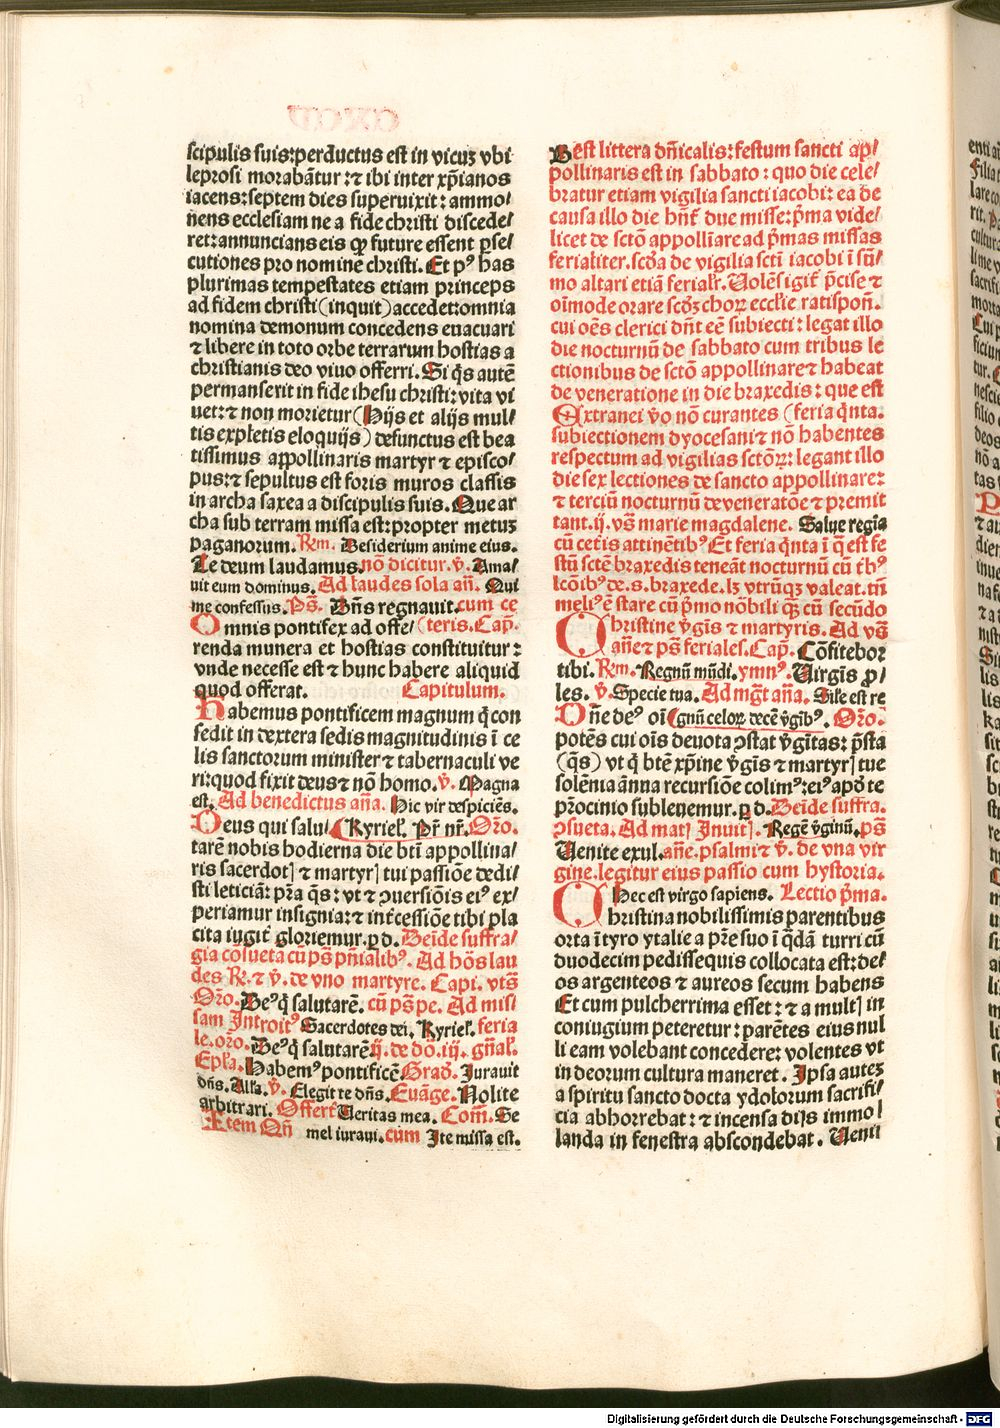 scipulis suis:perductus est in vicuʒ vbi
leprosi morabãtur:⁊ ibi inter xp̃ianos
iacens:septem dies superuixit:ammo/
nens ecclesiam ne a fide christi discede/
ret:annuncians eis qꝫ future essent pse/
cutiones pro nomine christi. Et pꝰ has
plurimas tempestates etiam princeps
ad fidem christi(inquit)accedet:omnia
nomina demonum concedens euacuari
⁊ libere in toto orbe terrarum hostias a
christianis deo viuo offerri. Si q̃s autẽ
permanserit in fide ihesu christi:vita vi
uet:⁊ non morietur(Hijs et alijs mul/
tis expletis eloquijs) defunctus est bea
tissimus appollinaris martyr ⁊ episco/
pus:⁊ sepultus est foris muros classis
in archa saxea a discipulis suis. Que ar
cha sub terram missa est:propter metuʒ
paganorum. Rm. Desiderium anime eius.
Te deum laudamus.nõ dicitur.v̾. Ama/
uit eum dominus. Ad laudes sola añ. Qui
me confessus.Ps̃. Dñs regnauit.cum ce
Omnis pontifex ad offe/(teris.Cap̃.
renda munera et hostias constituitur:
vnde necesse est ⁊ hunc habere aliquid
quod offerat. Capitulum.
Habemus pontificem magnum q̃ con
sedit in dextera sedis magnitudinis ĩ ce
lis sanctorum minister ⁊ tabernaculi ve
ri:quod fixit deus ⁊ nõ homo.v̾. Magna
est. Ad benedictus aña. Hic vir despiciẽs.
Deus qui salu/(Kyriel̃. Pr̃ nr̃.Orõ.
tarẽ nobis hodierna die btĩ appollina/
ris sacerdotꝭ ⁊ martyrꝭ tui passiõe dedi/
sti leticiã: pr̃a q̃s: vt ⁊ ꝯuersiõis eiꝰ ex/
periamur insignia:⁊ int̾cessiõe tibi pla
cita iugit̾ gloriemur.ꝑ d. Deĩde suffra/
gia cõsueta cũ ps̃ pñialibꝰ. Ad hõs lau
des R̃. ⁊ v̾. de vno martyre. Capi. vts̃
Orõ. Deꝰ q̃ salutarẽ. cũ ps̃ pe. Ad miss
sam Introitꝰ Sacerdotes dei. Kyriel̃. feria
le.orõ. Deꝰ q̃ salutarẽ ij. de dõ.iij. gñal̃.
Ep̃la. Habemꝰ pontificẽ. Grad̃. Jurauit
dñs. Alĩa. v̾. Elegit te dñs. Euãge. Nolite
arbitrari. Offert̃ Veritas mea. Com̃. Se
mel iuraui.cum Ite missa est.
Item Qñ
B est littera dñicalis:festum sancti ap/
pollinaris est in sabbato: quo die cele/
bratur etiam vigilia sancti iacobi: ea de
causa illo die hñt̃ due misse:p̃ma vide/
licet de sctõ appollĩare ad p̃mas missas
ferialiter.scd̃a de vigilia sctĩ iacobi ĩ sũ/
mo altari etiã ferialr̃. Volẽs igit̃ p̃cise ⁊
oĩmode orare scd̃ʒ choꝝ eccl̃ie ratispoñ.
cui oẽs clerici dñt eẽ subiecti: legat illo
die nocturnũ de sabbato cum tribus le
ctionibus de sctõ appollinare ⁊ habeat
de veneratione in die braxedis: que est
Extranei v̾o nõ curantes (feria q̃nta.
subiectionem dyocesani ⁊ nõ habentes
respectum ad vigilias sctõꝝ: legant illo
die sex lectiones de sancto appollinare:
⁊ terciũ nocturnũ de veneratõe ⁊ premit
tant.ij. vs̃ marie magdalene. Salue regĩa
cũ cet̾is attinẽtibꝰ Et feria q̃nta ĩ q̃ est fe
stũ sctẽ braxedis teneãt nocturnũ cũ t̾bꝰ
lc̃õibꝰ de.s. braxede. lʒ vtrũqʒ valeat.tñ
meliꝰ ẽ stare cũ p̃mo nõbili q̃ʒ cũ secũdo
Christine v̾gĩs ⁊ martyris. Ad vs̃
añe ⁊ ps̃ feriales.Cap̃. Cõfitebor
tibi. Rm. Regnũ mũdi. ymnꝰ. Virgĩs ꝓ/
les. v̾. Specie tua. Ad mg̃t aña. Sile est re
Dñe deꝰ oĩ(gnũ celoꝝ decẽ v̾gĩbꝰ. Orõ.
potẽs cui oĩs deuota ꝯstat v̾gĩtas: p̃sta
(q̃s) vt q̃ btẽ xp̃ine v̾gĩs ⁊ martyrꝭ tue
solẽnia ãnna recursiõe colimꝰ:eiꝰ apd̃ te
pr̃ocinio subleuemur.ꝑ d. Deĩde suffra.
ꝯsueta. Ad matꝭ Inuitꝭ. Regẽ v̾ginũ. ps̃
Venite exul. añe.psalmi ⁊ v̾. de vna vir
gine.legitur eius passio cum hystoria.
Hec est virgo sapiens. Lectio p̃ma.
Christina nobilissimis parentibus
orta ĩ tyro ytalie a pr̃e suo ĩ q̃dã turri cũ
duodecim pedissequis collocata est:de/
os argenteos ⁊ aureos secum habens
Et cum pulcherrima esset: ⁊ a multꝭ in
coniugium peteretur: parẽtes eius nul
li eam volebant concedere: volentes vt
in deorum cultura maneret. Ipsa auteʒ
a spiritu sancto docta ydolorum sacrifi/
cia abhorrebat: ⁊ incensa dijs immo/
landa in fenestra abscondebat. Veni/
Digitalisierung gefördert durch die Deutsche Forschungsgemeinschaft - DFG